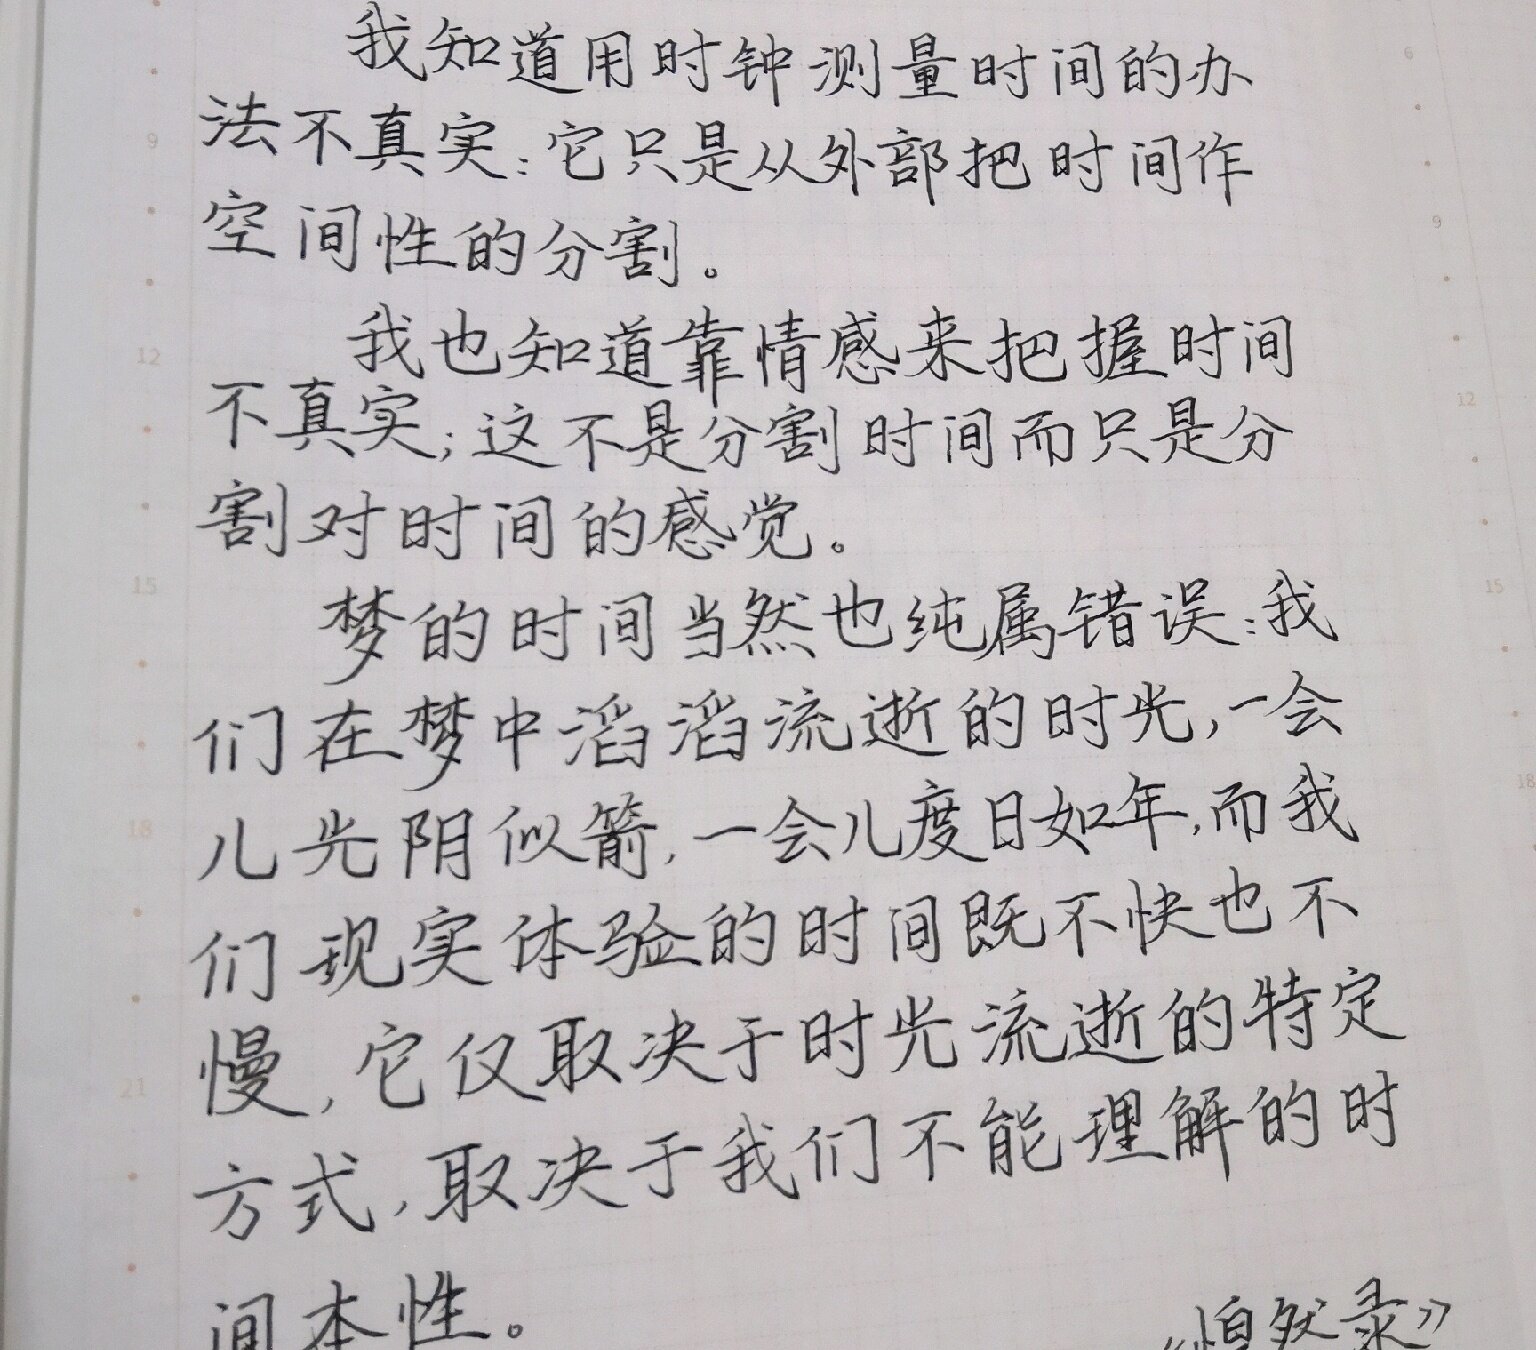 我知道用时钟测量时间的办
法不真实：它只是从外部把时间作
空间性的分割。
我也知道靠情感来把握时间
不真实；这不是分割时间而只是分
割对时间的感觉。
梦的时间当然也纯属错误：我
们在梦中滔滔流逝的时光，一会
儿光阴似箭，一会儿度日如年，而我
们现实体验的时间既不快也不
慢，它仅取决于时光流逝的特定
方式，取决于我们不能理解的时
间本性。
《惶然录》
9
12
15
18
21
6
9
12
15
18